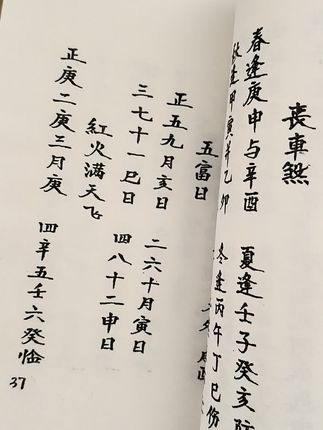 喪車煞
春逢庚申与辛酉 夏逢壬子癸亥防
秋逢甲寅并乙卯 冬逢丙午丁巳伤
五富日
正五九月亥日 二六十月寅日
三七十一巳日 四八十二申日
紅火满天飞
正庚二庚三月庚 四辛五壬六癸临
37